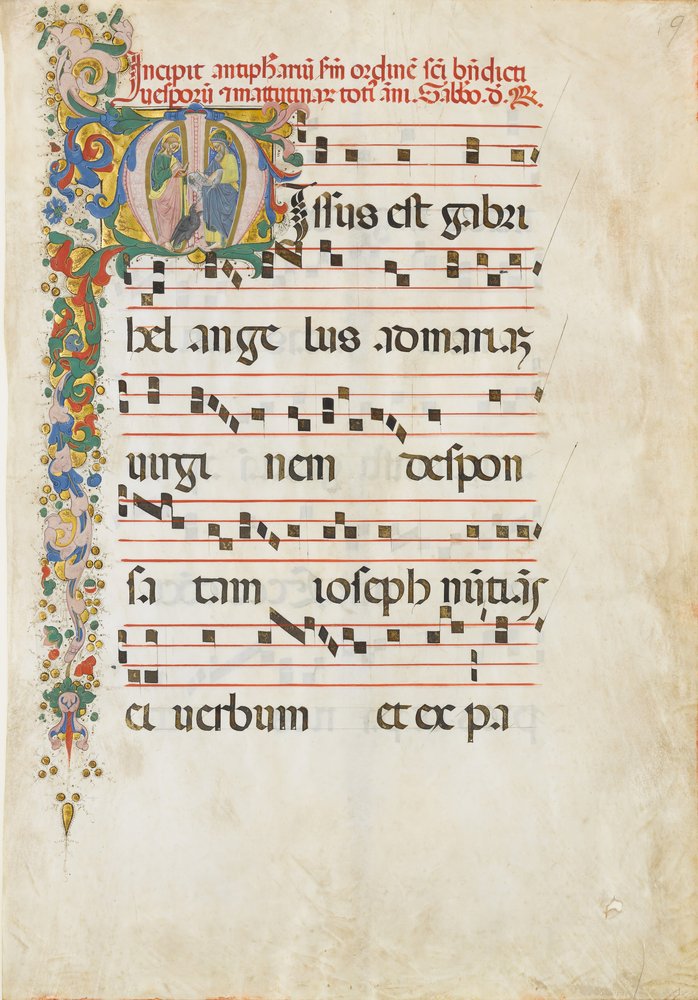 9
Incipit antiphariū sm̄ ordinē sc̄i bn̄dicti
uesporū ⁊ mattutinar toti āni. Sabbo. d. R.
Missus est gabri
hel ange lus ad mariaz
uirgi nem despon
sa tam ioseph nūtiās
ei uerbum et ex pa